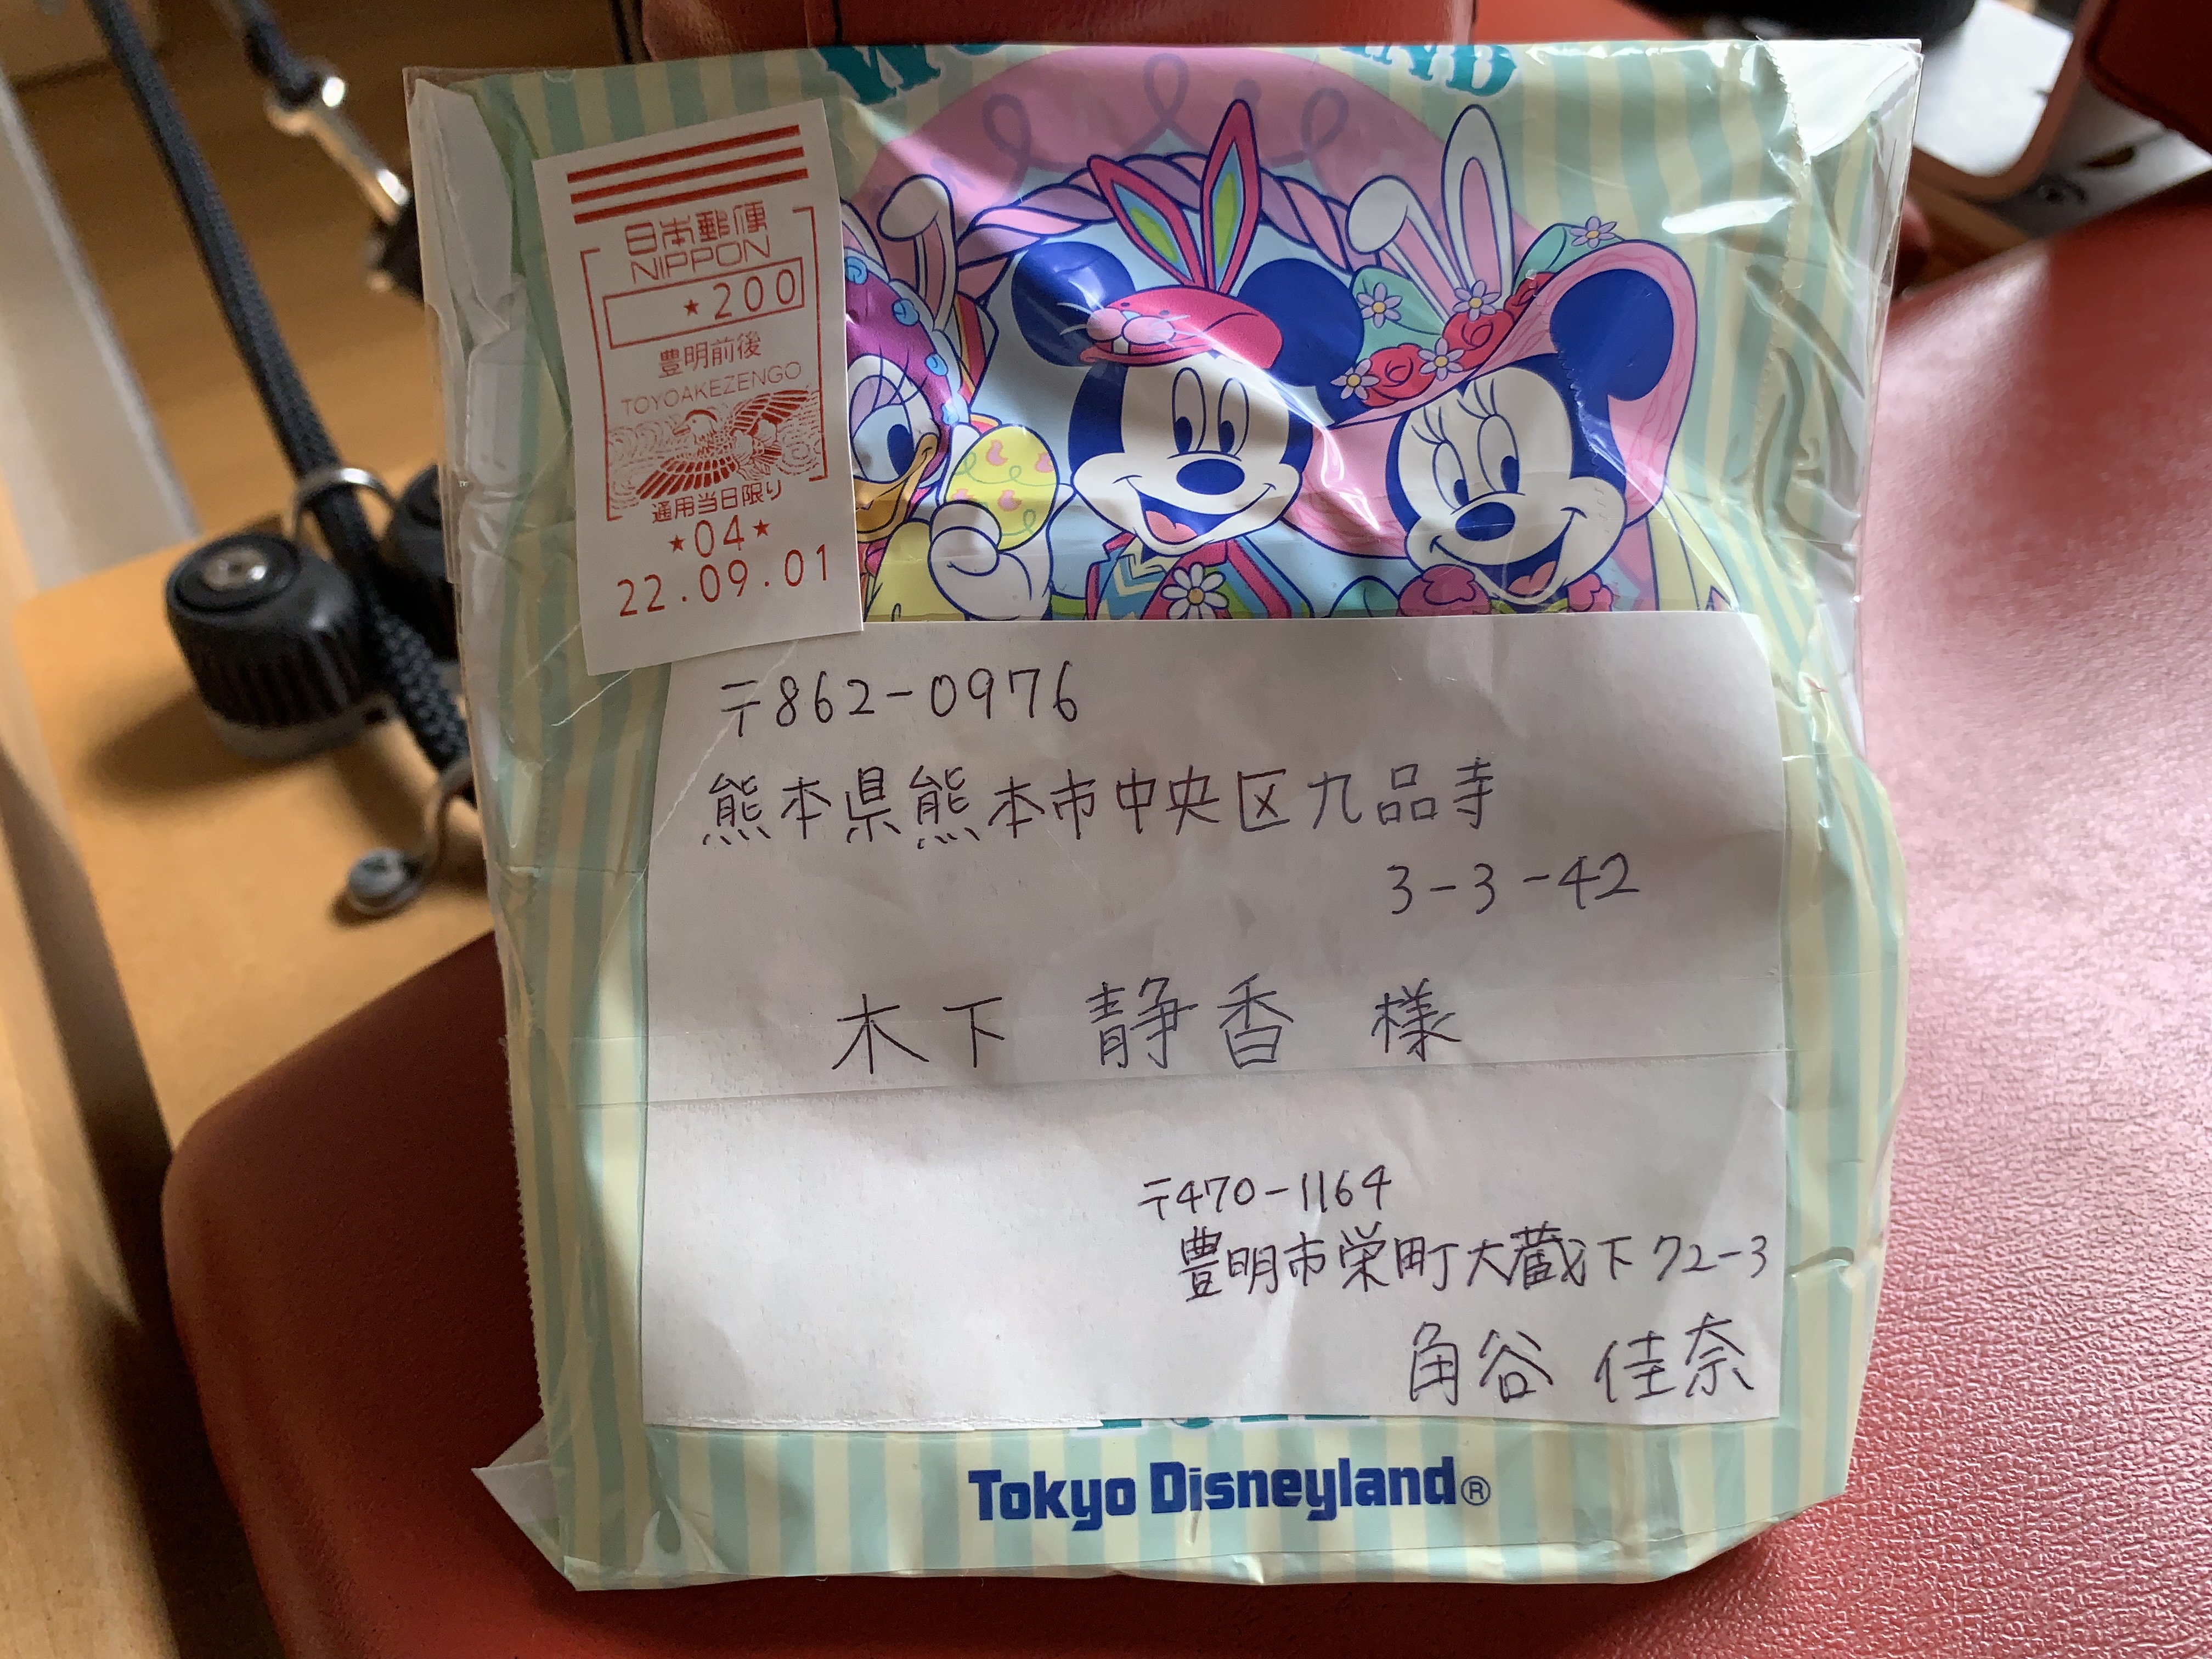 日本郵便
NIPPON
★200
豊明前後
TOYOAKEZENGO
通用当日限り
★04★
22.09.01
〒862-0976
熊本県熊本市中央区九品寺
3-3-42
木下 静香 様
〒470-1164
豊明市栄町大蔵下72-3
角谷 佳奈
Tokyo Disneyland®